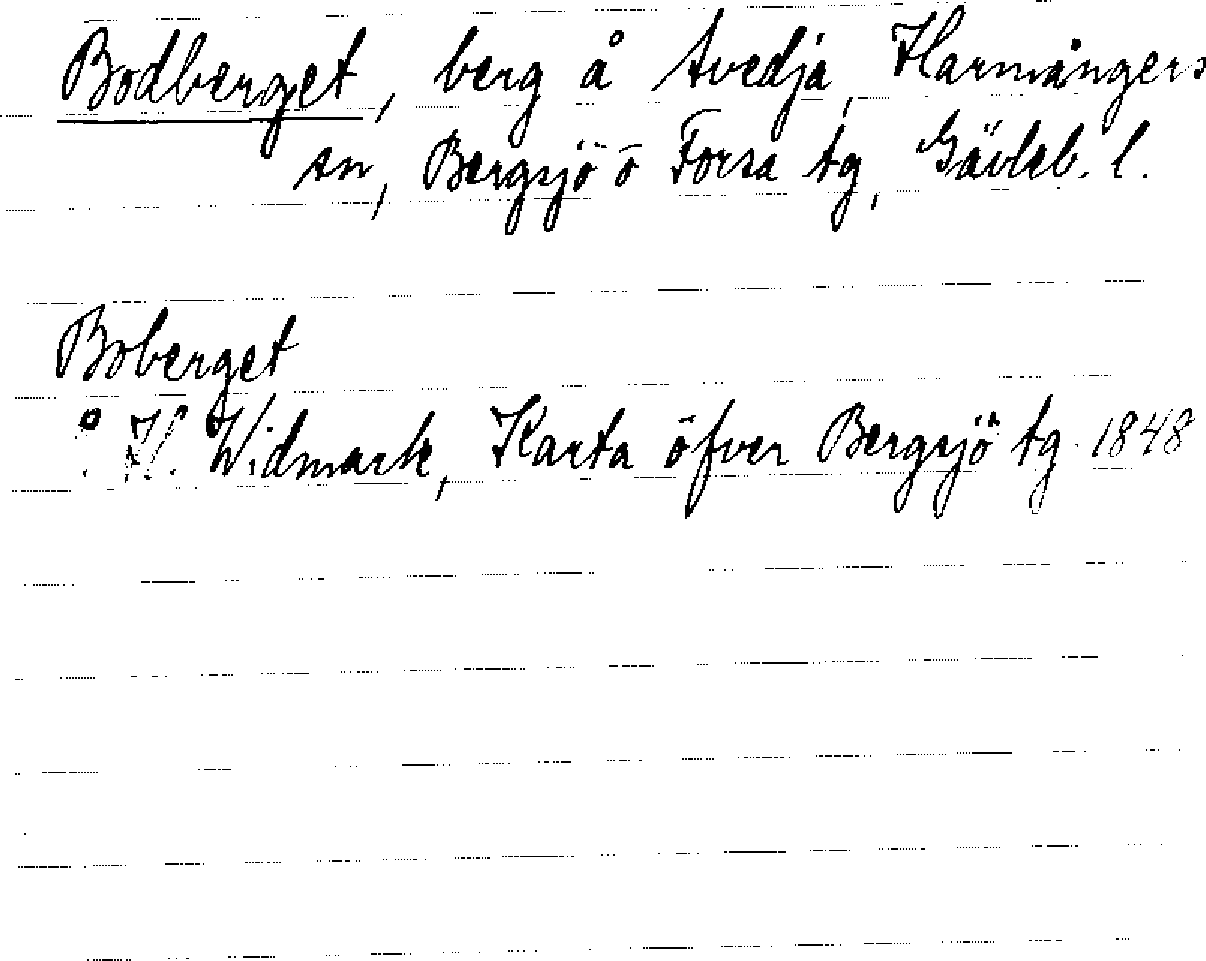 Bodberget, berg å Svedja, Harmångers
sn, Bergsjö o Forsa tg, Gävleb. l.
Boberget
H. Widmark, Karta öfver Bergsjö tg. 1848